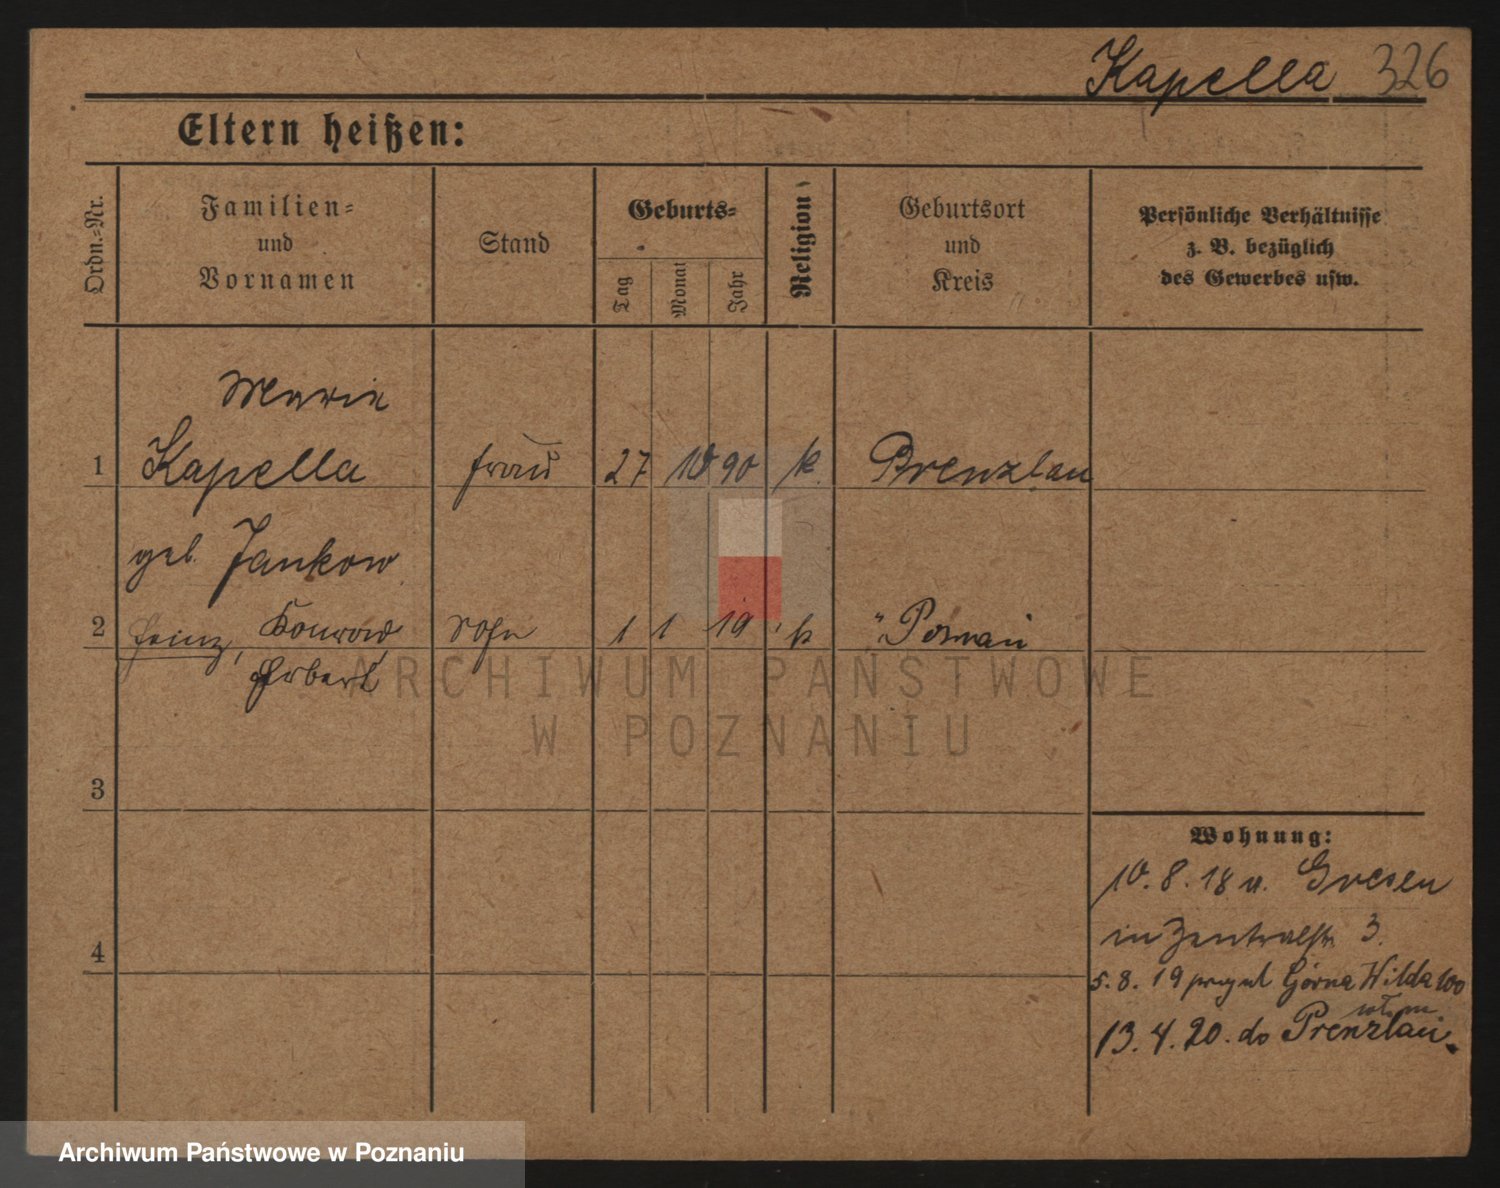 Kapella 326
Eltern heißen:
Ordn.-Nr.
Familien-
und
Vornamen
Stand
Geburts-
Tag
Monat
Jahr
Religion
Geburtsort
und
Kreis
Persönliche Verhältnisse
z. B. bezüglich
des Gewerbes usw.
Marie
1 Kapella frau 27 10 90 k. Prenzlau
geb. Jankow
2 Heinz, Konrad Sohn 1 1 19 k " Poznań
Herbert
ARCHIWUM PAŃSTWOWE
W POZNANIU
3
Wohnung:
10. 8. 18 v. Gnesen
in Zentralstr 3.
4
5. 8. 19 Górna Wilda 100
13. 4. 20. do Prenzlau.
Archiwum Państwowe w Poznaniu